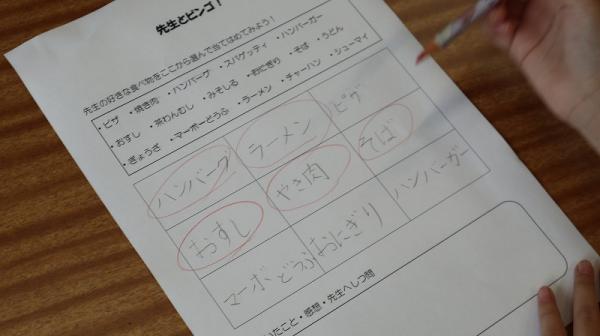 先生とビンゴ！
先生の好きな食べ物をここから選んで当てはめてみよう！
・ピザ ・焼き肉 ・ハンバーグ ・スパゲッティ ・ハンバーガー
・おすし ・茶わんむし ・みそしる ・おにぎり ・そば ・うどん
・ぎょうざ ・マーボーどうふ ・ラーメン ・チャーハン ・シューマイ
ハンバーグ ラーメン ピザ
おすし やき肉 そば
マーボどうふ おにぎり ハンバーガー
いたこと・感想・先生へしつ問